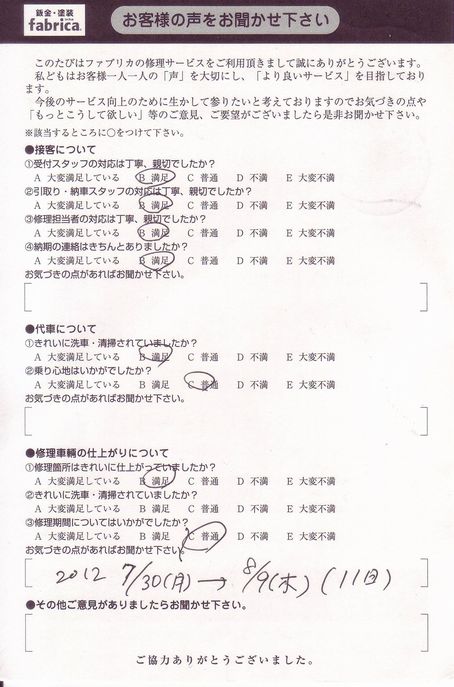 鈑金・塗装
fabrica.
お客様の声をお聞かせ下さい
このたびはファブリカの修理サービスをご利用頂きまして誠にありがとうございます。
私どもはお客様一人一人の「声」を大切にし、「より良いサービス」を目指しており
ます。
今後のサービス向上のために生かして参りたいと考えておりますのでお気づきの点や
「もっとこうして欲しい」等のご意見、ご要望がございましたら是非お聞かせ下さい。
※該当するところに○をつけて下さい。
●接客について
①受付スタッフの対応は丁寧、親切でしたか?
A 大変満足している B 満足 C 普通 D 不満 E 大変不満
②引取り・納車スタッフの対応は丁寧、親切でしたか?
A 大変満足している B 満足 C 普通 D 不満 E 大変不満
③修理担当者の対応は丁寧、親切でしたか?
A 大変満足している B 満足 C 普通 D 不満 E 大変不満
④納期の連絡はきちんとありましたか?
A 大変満足している B 満足 C 普通 D 不満 E 大変不満
お気づきの点があればお聞かせ下さい。
●代車について
①きれいに洗車・清掃されていましたか?
A 大変満足している B 満足 C 普通 D 不満 E 大変不満
②乗り心地はいかがでしたか?
A 大変満足している B 満足 C 普通 D 不満 E 大変不満
お気づきの点があればお聞かせ下さい。
●修理車輛の仕上がりについて
①修理箇所はきれいに仕上がっていましたか?
A 大変満足している B 満足 C 普通 D 不満 E 大変不満
②きれいに洗車・清掃されていましたか?
A 大変満足している B 満足 C 普通 D 不満 E 大変不満
③修理期間についてはいかがでしたか?
A 大変満足している B 満足 C 普通 D 不満 E 大変不満
お気づきの点があればお聞かせ下さい。
2012 7/30(月) → 8/9(木) (11日)
●その他ご意見がありましたらお聞かせ下さい。
ご協力ありがとうございました。